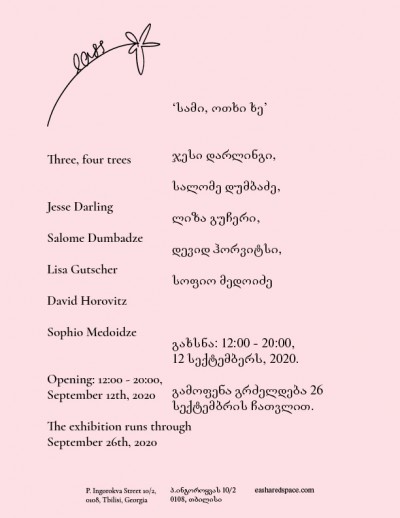 ‘სამი, ოთხი ხე’
Three, four trees
ჯესი დარლინგი,
სალომე დუმბაძე,
Jesse Darling
ლიზა გუჩერი,
Salome Dumbadze
დევიდ ჰორვიტსი,
Lisa Gutscher
სოფიო მედოიძე
David Horovitz
Sophio Medoidze
გახსნა: 12:00 - 20:00,
12 სექტემბერს, 2020.
Opening: 12:00 - 20:00,
September 12th, 2020
გამოფენა გრძელდება 26
სექტემბრის ჩათვლით.
The exhibition runs through
September 26th, 2020
P. Ingorokva Street 10/2,
0108, Tbilisi, Georgia
პ.ინგოროყვას 10/2
0108, თბილისი
easharedspace.com